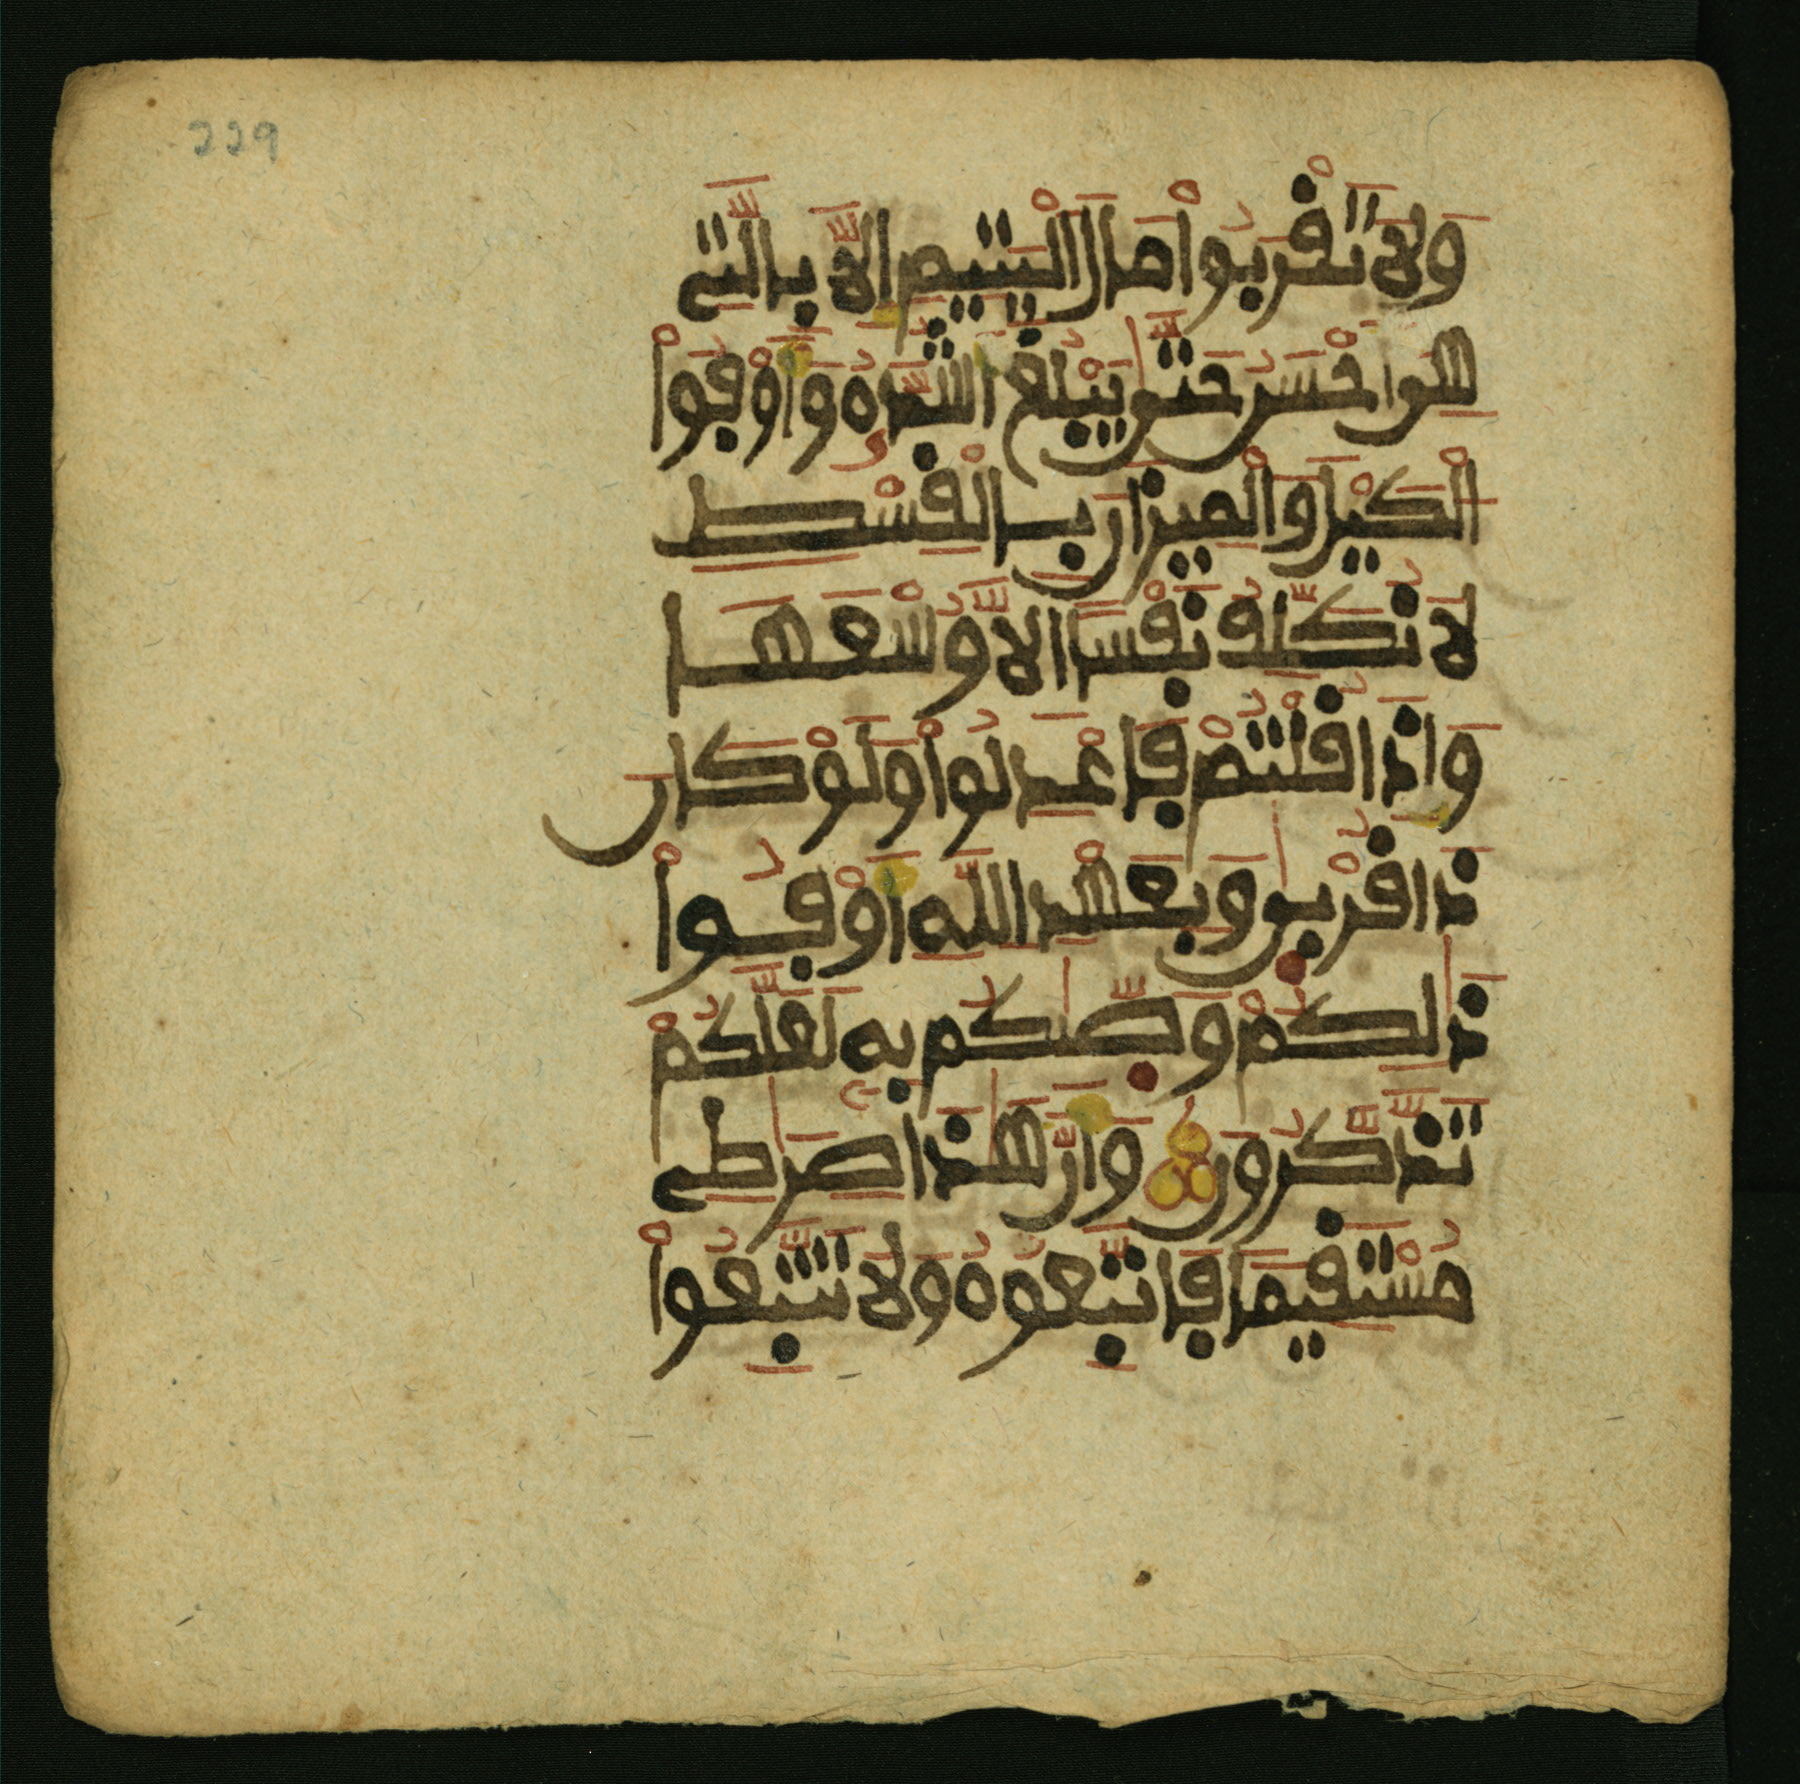 229
وَلَا تَقْرَبُواْ مَالَ اَلْيَتِيمِ إِلَّا بِالَّتِے
هِىَ أَحْسَنُ حَتَّىٰ يَبْلُغَ أَشُدَّهُ وَأَوْفُواْ
اَلْكَيْلَ وَالْمِيزَانَ بِالْقِسْطِ
لَا نُكَلِّفُ نَفْسًا اِلَّا وُسْعَهَا
وَإِذَا قُلْتُمْ فَاعْدِلُواْ وَلَوْ كَانَ
ذَا قُرْبىٰ وَبِعَهْدِ اِللَّهِ أَوْفُواْ
ذَٰلِكُمْ وَصَّىٰكُم بِهِ لَعَلَّكُمْ
تَذَّكَّرُونَ وَأَنَّ هَٰذَا صِرَٰطِے
مُسْتَقِيمًا فَاتَّبِعُوهُ وَلَا تَتَّبِعُواْ